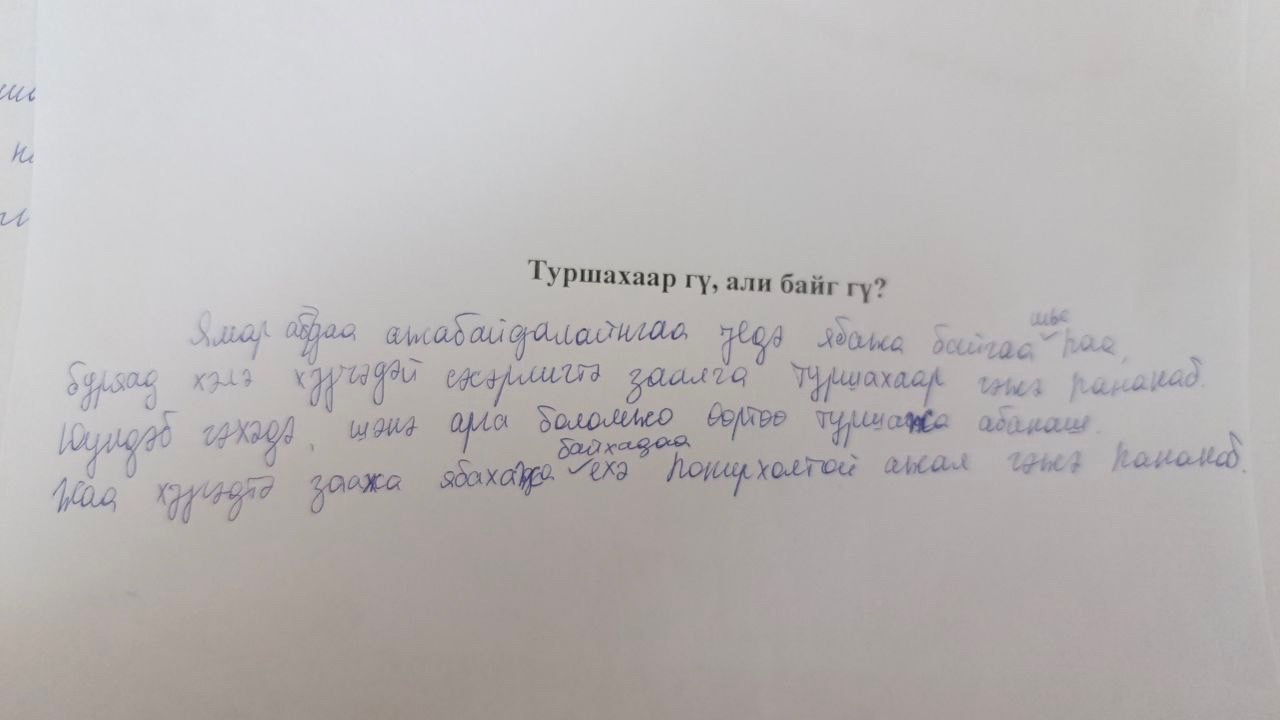 Туршахаар гү, али байг гү?
Ямар абдаа ажабайдалайнгаа үедэ ябажа байгаа шье һаа,
буряад хэлэ хүүгэдэй сэсэрлигтэ заалга туршахаар гэжэ һананаб.
Юундэб гэхэдэ, шэнэ арга боломжо өөртөө туршажа абанаш.
Жаа хүүгэдтэ заажа ябахадаа байхадаа ехэ һонирхолтой ажал гэжэ һананаб.